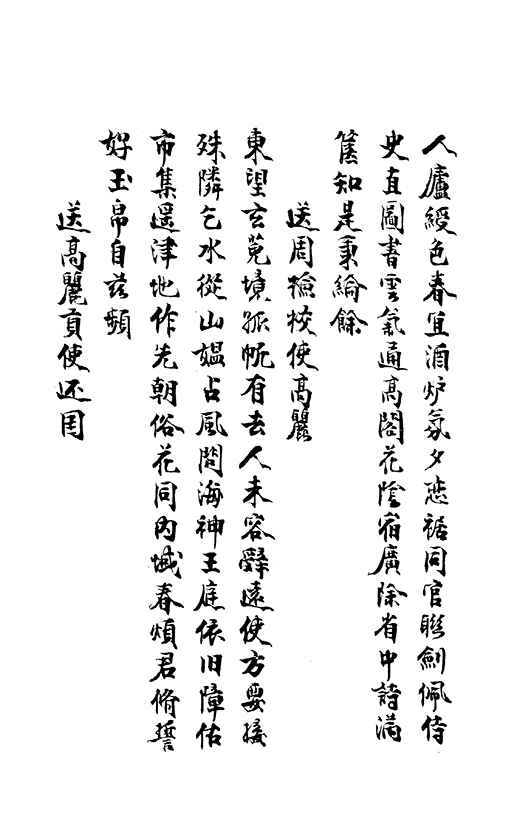 人廬綬色春宜酒炉氛夕恋裾同官聯劍佩侍
史直圖書雲氣通高閣花陰宿廣除省中詩満
篋知是秉綸餘
送周檢校使高麗
東望玄菟境孤帆有去人未容辭遠使方要接
殊隣乞水從山媼占風問海神王庭依旧障估
市集遥津地作先朝俗花同内域春煩君脩誓
好玉帛自茲頻
送高麗貢使还国